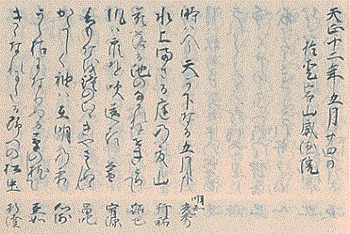 天正十二年五月廿四日
於愛宕山威徳院
時は今天か下なる五月哉 明智 光秀
水上まさる庭の夏山 行祐
花落る池の流をせきとめて 紹巴
風に霞を吹送るくれ 宥源
春も猶鐘のひゝきや冴ぬらん 昌叱
かたしく袖は有明の霜 心前
うらかれになりぬる草の枕して 兼如
きゝなれにたる野への松虫 行澄